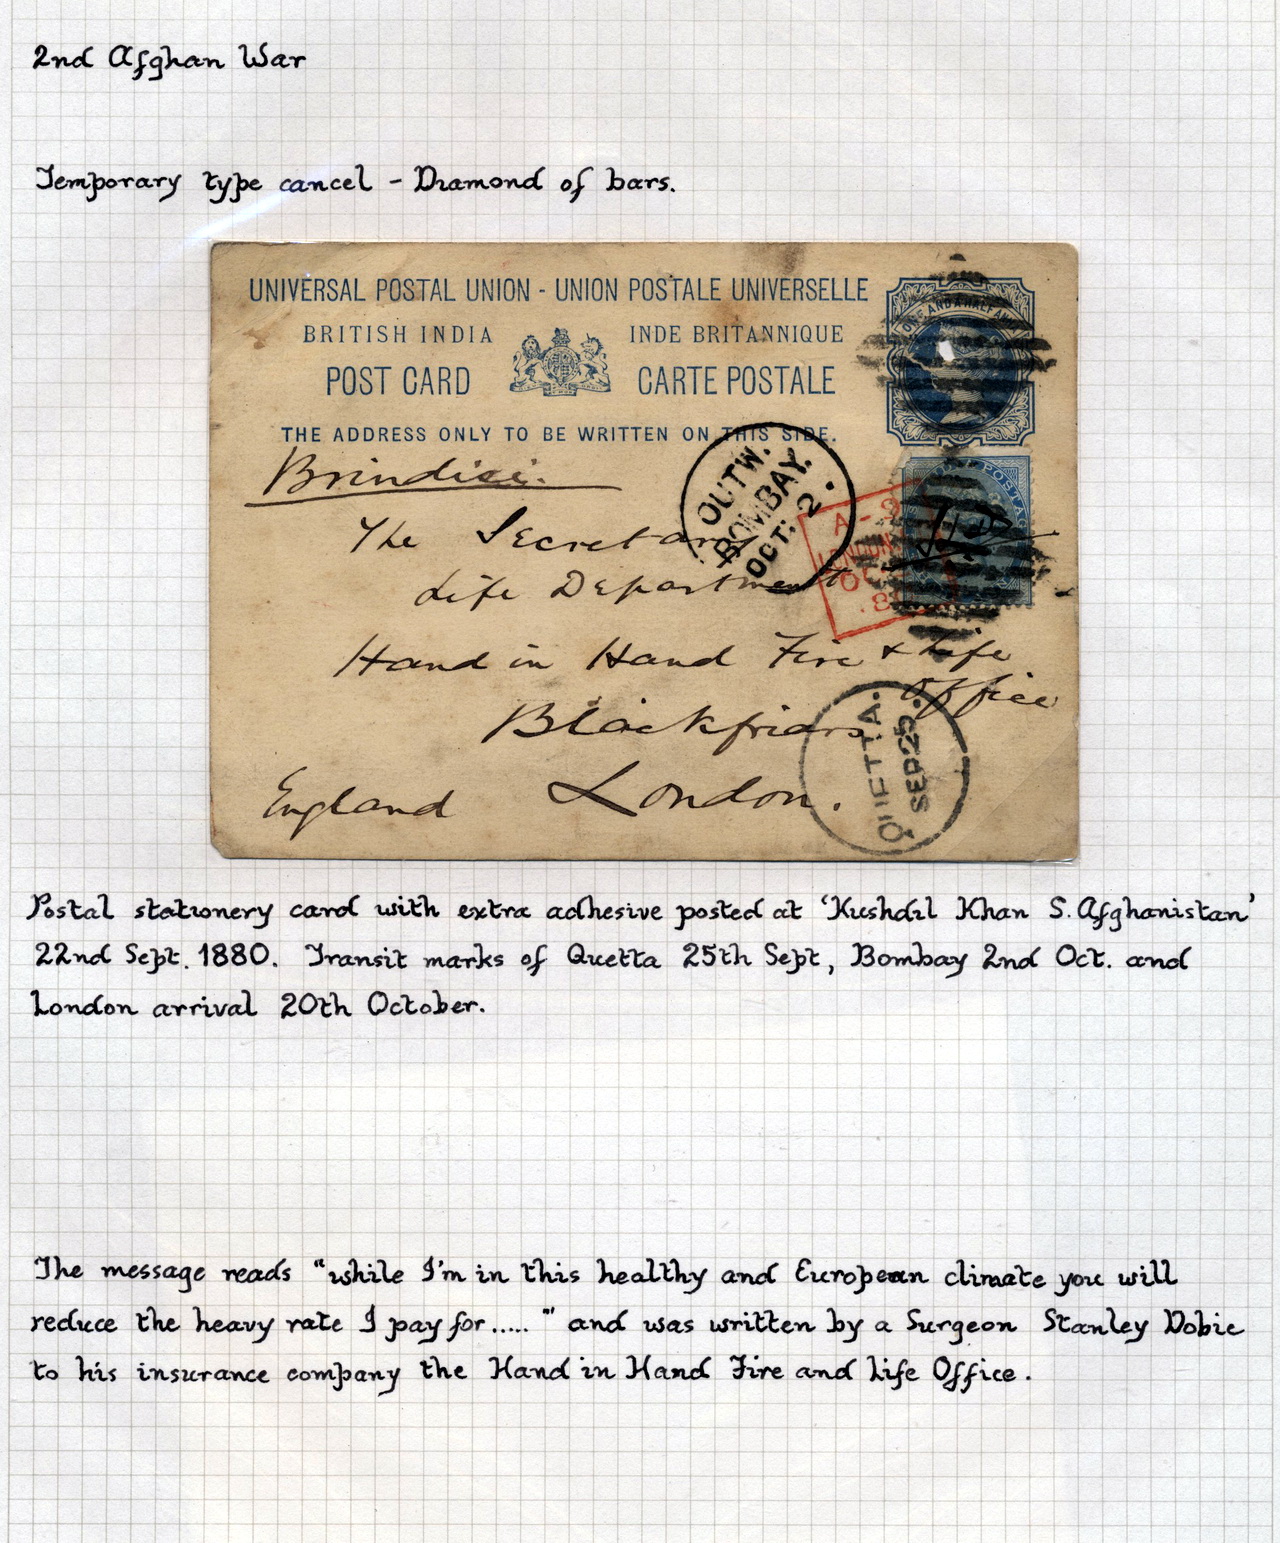 2nd Afghan War
Temporary type cancel - Diamond of bars.
UNIVERSAL POSTAL UNION - UNION POSTALE UNIVERSELLE
BRITISH INDIA INDE BRITANNIQUE
POST CARD CARTE POSTALE
THE ADDRESS ONLY TO BE WRITTEN ON THIS SIDE.
ONE AND A HALF
Brindisi.
OUTW.
BOMBAY.
OCT: 2.
A-
LONDON
POSTAGE
The Secretary
Life Department
Hand in Hand Fire & Life
Office
Blackfriars
England London.
QUETTA.
SEP 25.
Postal stationery card with extra adhesive posted at 'Kushdil Khan S. Afghanistan'
22nd Sept. 1880. Transit marks of Quetta 25th Sept, Bombay 2nd Oct. and
London arrival 20th October.
The message reads "while I'm in this healthy and European climate you will
reduce the heavy rate I pay for....." and was written by a Surgeon Stanley Dobie
to his insurance company the Hand in Hand Fire and Life Office.